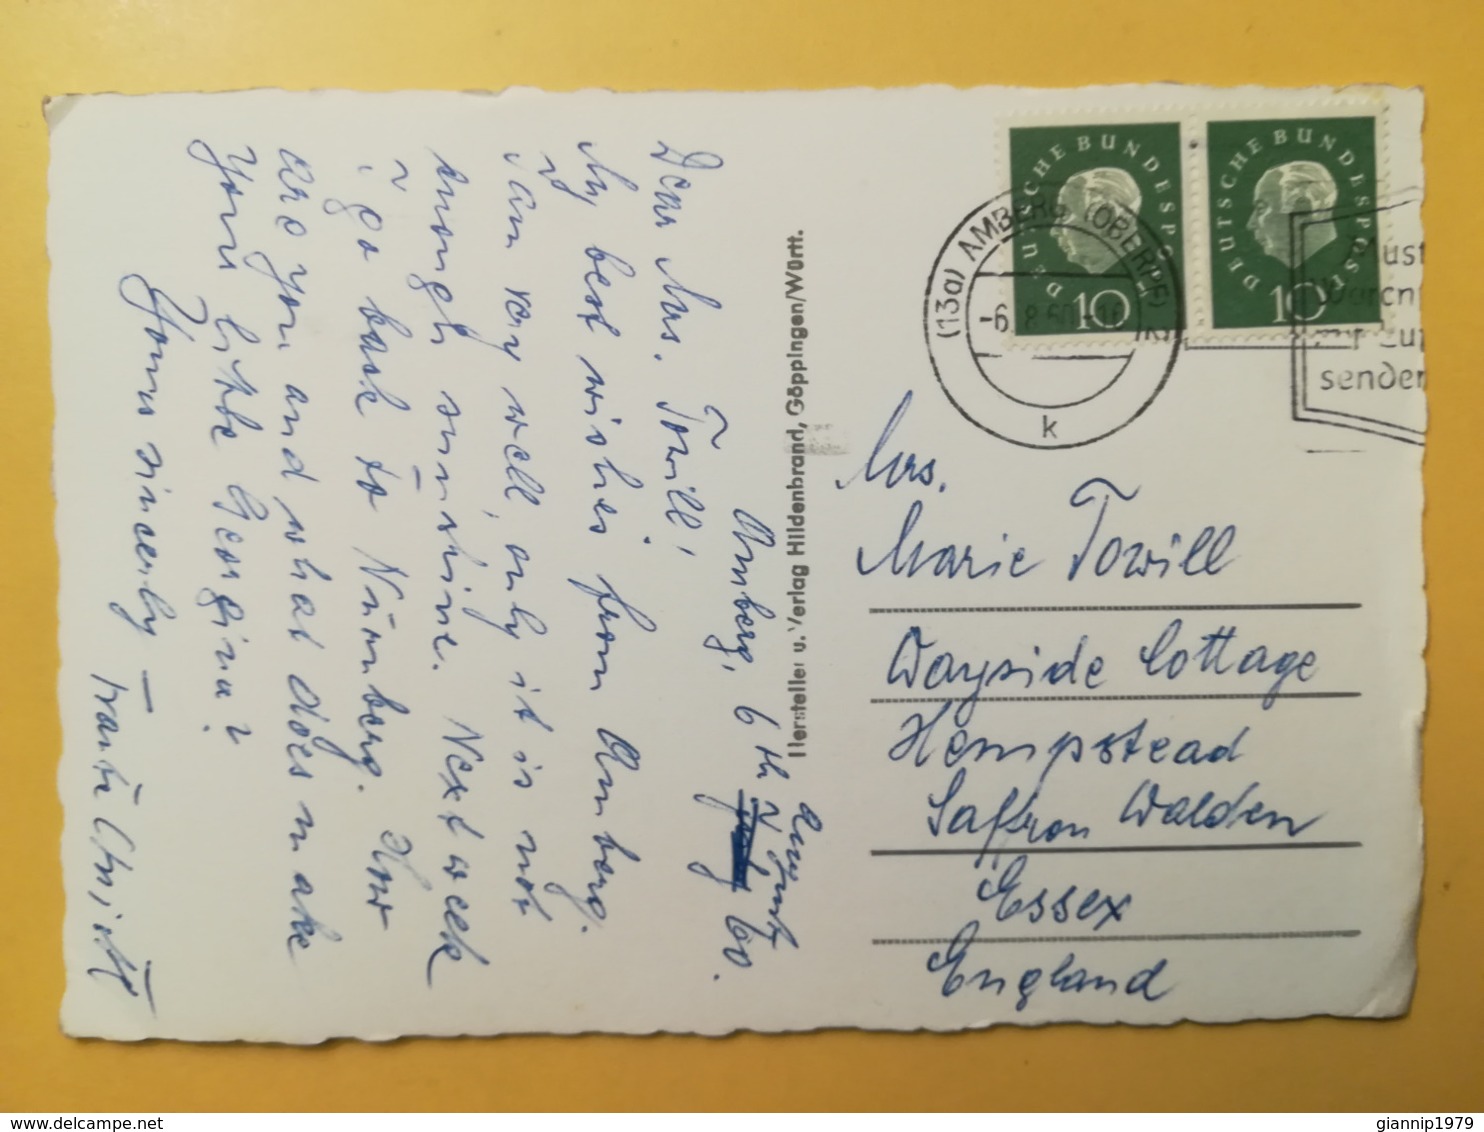 Amberg, 6th August 60.
Dear Mrs. Towill!
My best wishes from Amberg.
I am very well, only it is not
enough sunshine. Next week
I go back to Nürnberg. How
are you and what does make
your little Georgina?
Yours sincerly –
Hersteller u. Verlag Hildenbrand, Göppingen/Württ.
DEUTSCHE BUNDESPOST
10
DEUTSCHE BUNDESPOST
10
(13a) AMBERG (OBERPF) 2
-6.8.60-16
k
senden
Mrs.
Marie Towill
Wayside Cottage
Hempstead
Saffron Walden
Essex
England
delcampe.net
giannip1979